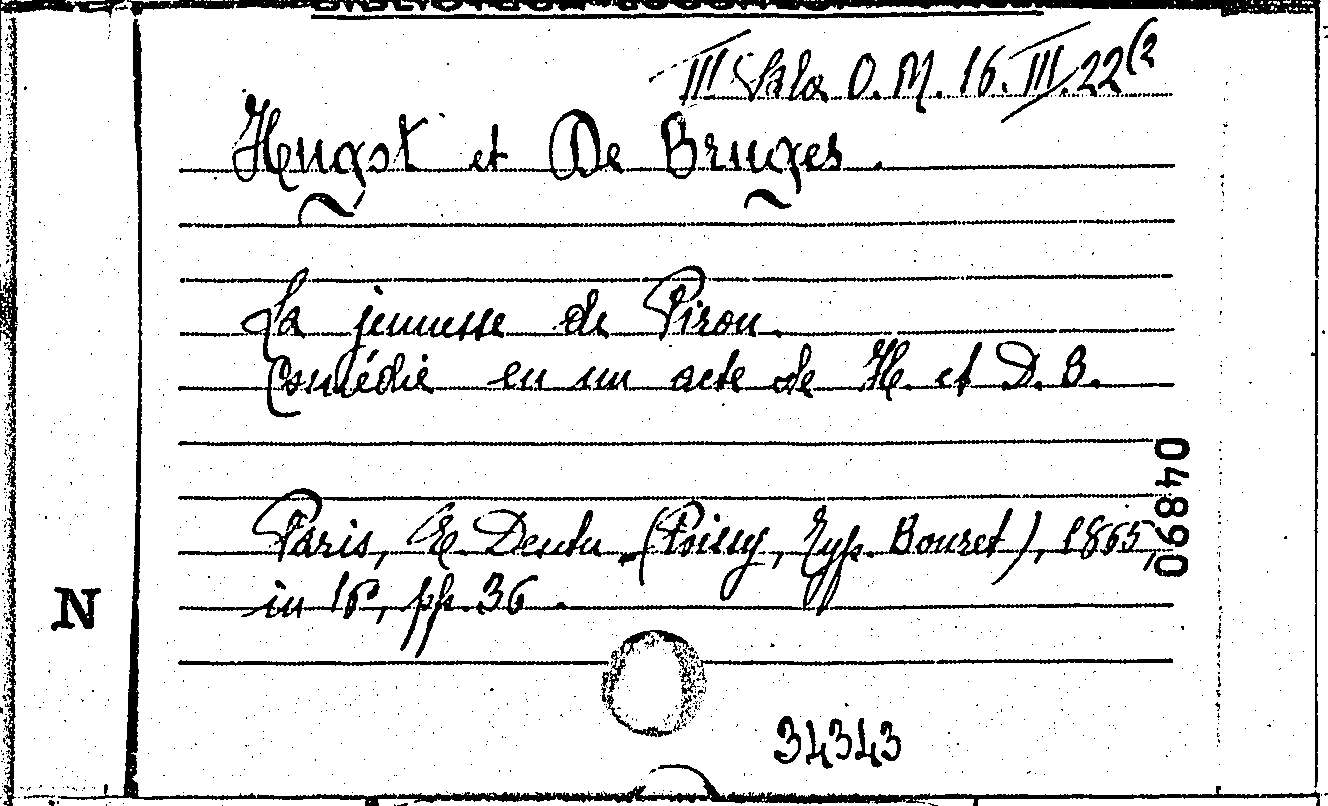 III Sala O. M. 16. III. 22(2
Hugot et De Bruges.
La jeunesse de Piron.
Comédie en un acte de H. et D. B.
Paris, E. Dentu (Poissy, Typ. Bouret), 1865,
in 16°, pp. 36.
04890
N
34343